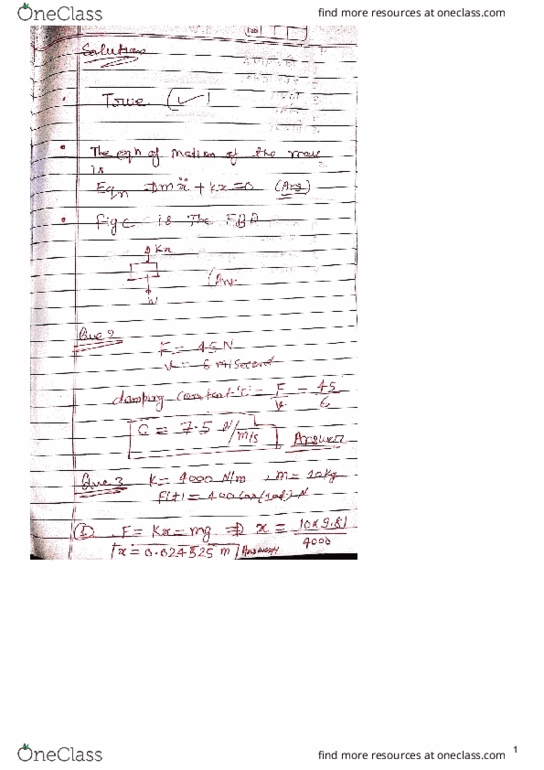 OneClass
find more resources at oneclass.com
Solution
True (✓)
The eqn of motion of the mass
is
Eqn ⇒ mẍ + kx = 0 (Ans)
Fig C is The FBD
Kx
(Ans
W
Que 2
F = 45 N
V = 6 m/second
damping constant 'C' = F/V = 45/6
C = 7.5 N/m/s Answer
Que 3 K = 4000 N/m , m = 10 kg
F(t) = 400 cos(10t) N
① F = Kx = mg ⇒ x = 10×9.81/4000
x = 0.024525 m Answer
1
OneClass
find more resources at oneclass.com